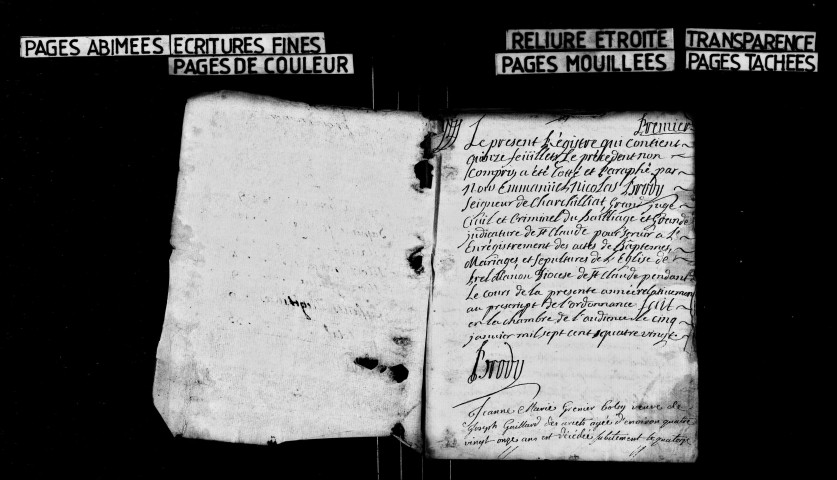 PAGES ABIMEES ECRITURES FINES
PAGES DE COULEUR
RELIURE ETROITE TRANSPARENCE
PAGES MOUILLEES PAGES TACHEES
Premier
Le present Régistre qui contient
quinze feüillets le précédent non
compris, a été cotté et Paraphé par
Nous Emmanüel Nicolas Brody
Seigneur de Charchilliat Grand Juge
Civil et Criminel du Bailliage et Grande
judicature de St Claude pour servir à L'
Enrégistrement des actes de Baptemes,
Mariages et Sepultures de L'Eglise de
Diocese de St Claude pendant
Le cours de la presente année relativement
au prescript de l'ordonnance fait
en la chambre de l'audience le cinq
janvier mil sept cent quatre vingt
Brody
Jeanne Marie Grenier veuve de
Joseph Guillard des agée d'environ quatre
vingt onze ans est décédée subitement le quatorze